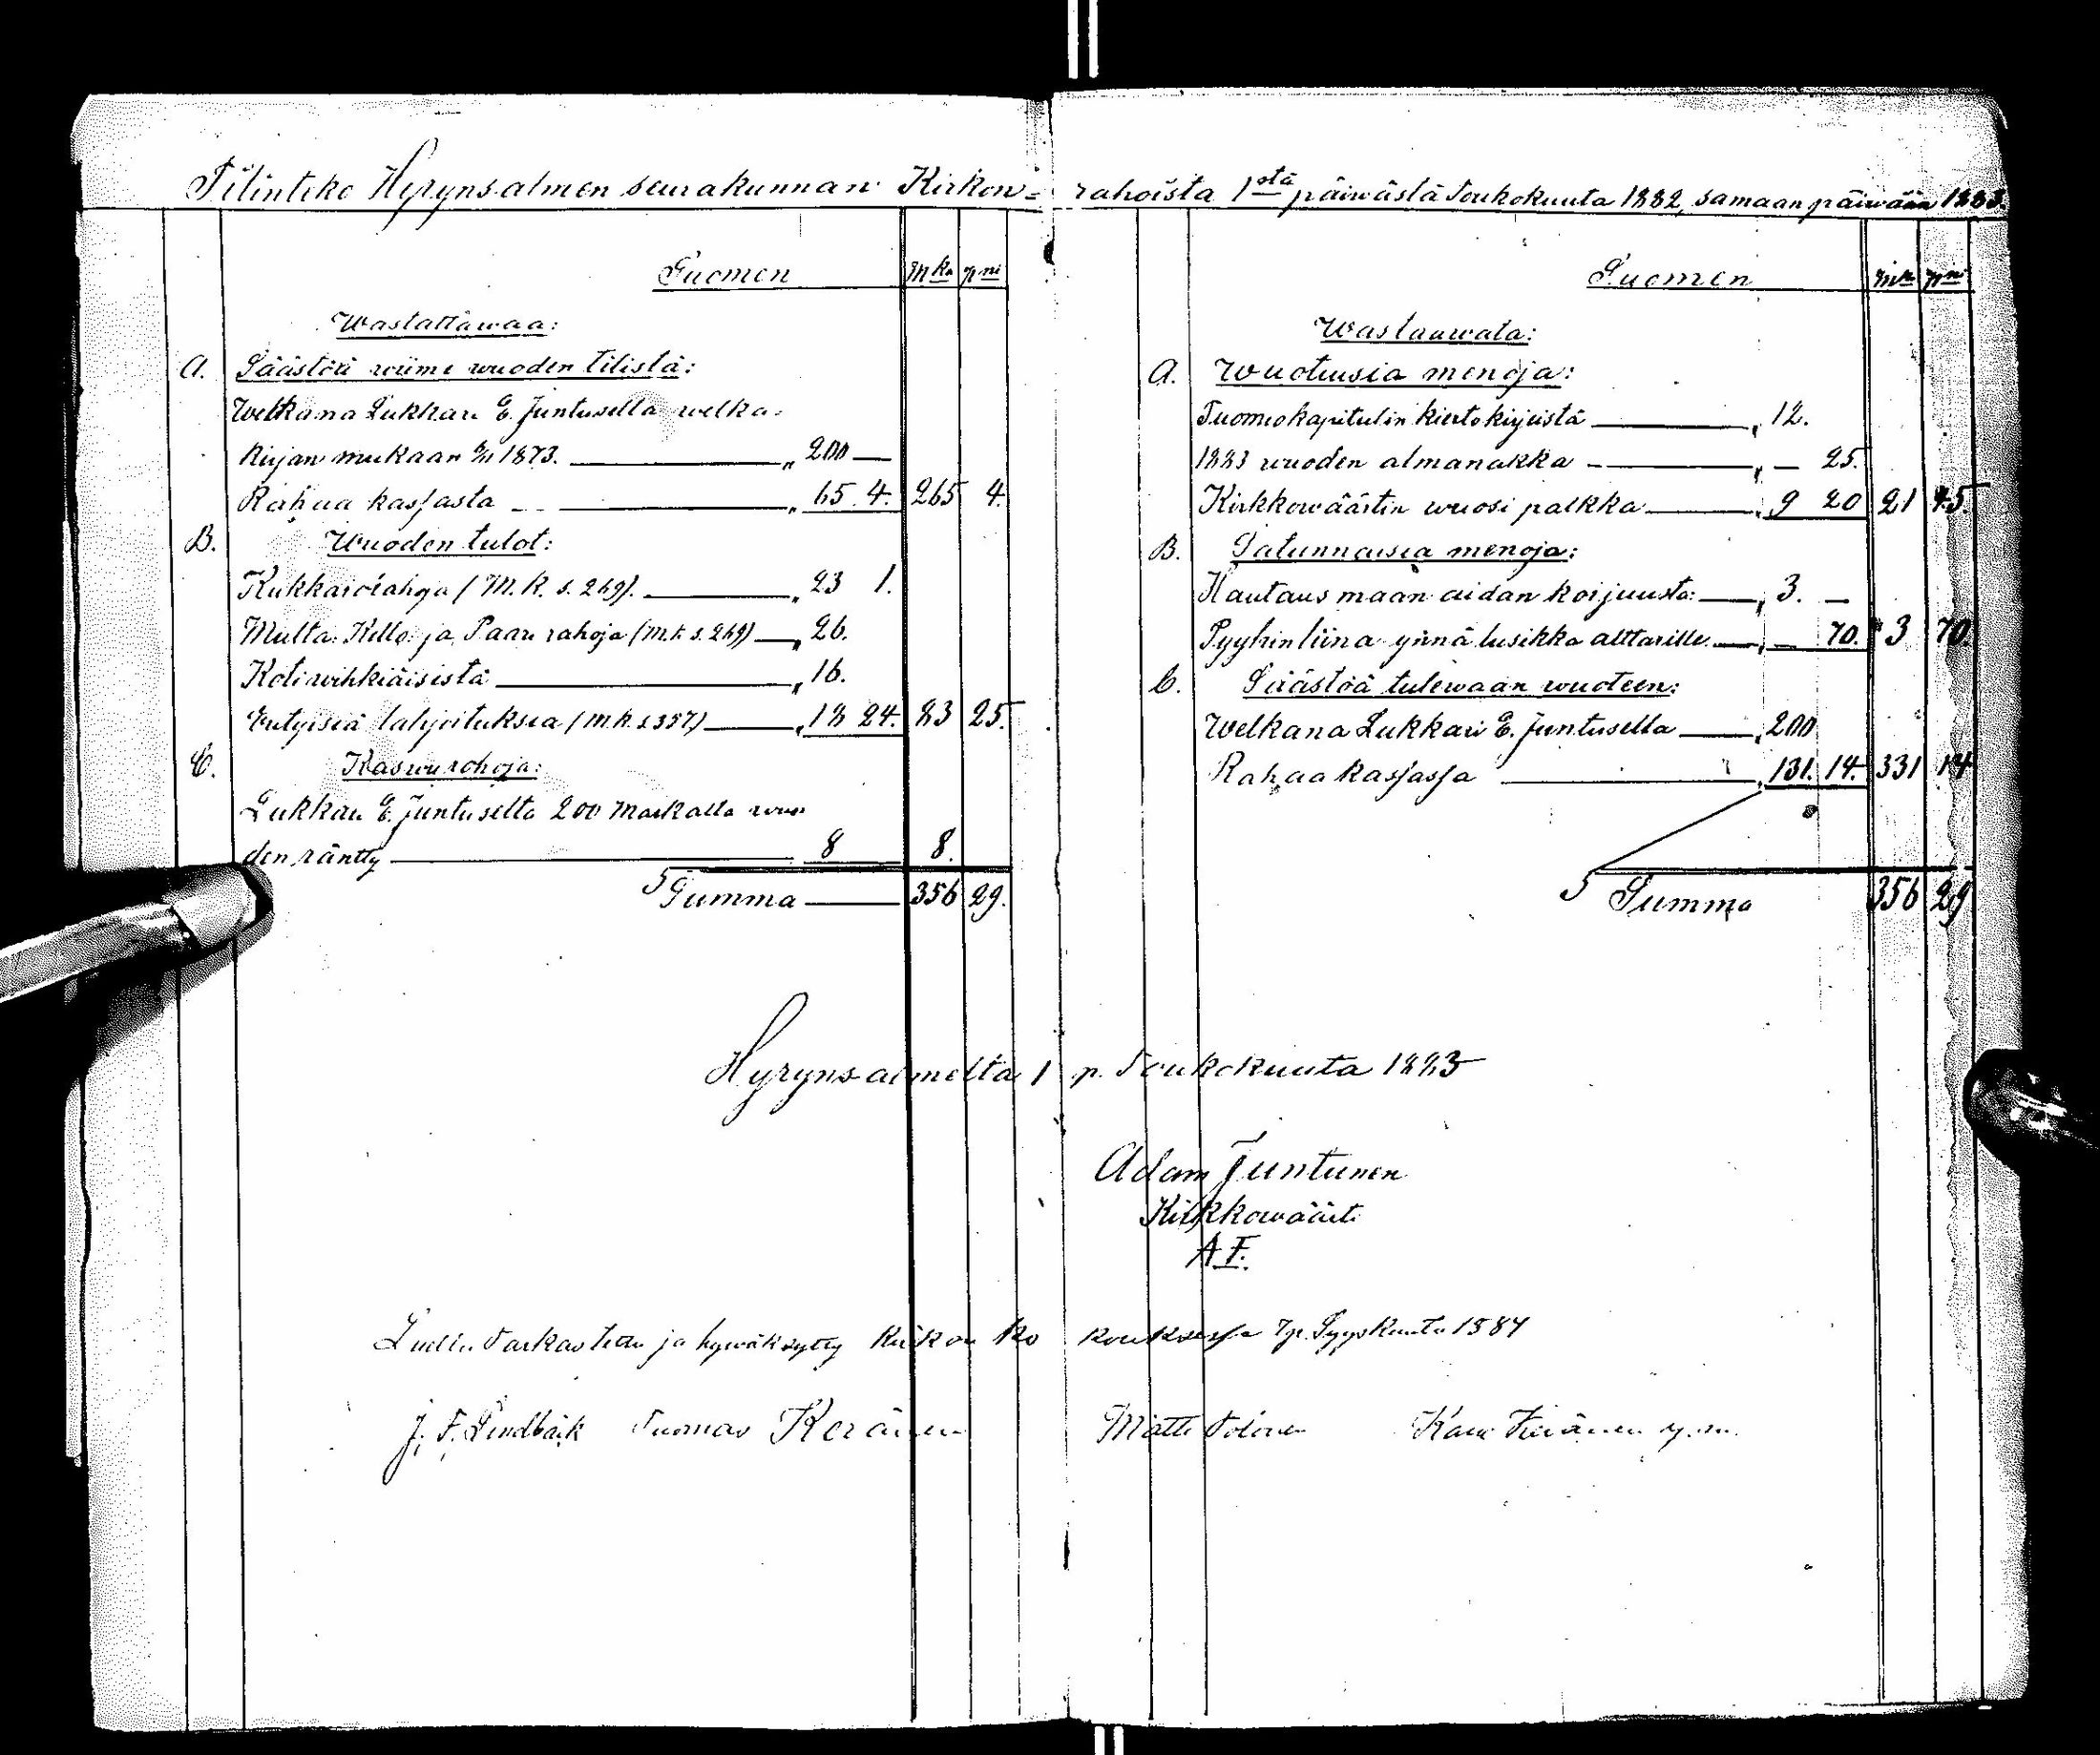 Tilinteko Hyrynsalmen seurakunnan Kirkon-rahoista 1stä päiwästä Toukokuuta 1882, samaan päiwään 1883.
Suomen Mka pni
Wastattawaa:
A. Säästöä wiime wuoden tilistä:
Welkana Lukkari E. Juntusella welka-
kirjan mukaan 1873. „ 200 —
Rahaa kassasta „ 65 4. 265 4.
B. Wuoden tulot:
Kukkarorahoja (M.K. s. 269). „ 23 1.
Multa- Kello- ja Paari rahoja (M.k. s. 269) „ 26.
Kotiwihkiäisistä „ 16.
Erityisiä lahjoituksia (M.K. s 357) „ 18 24. 83 25.
C. Kaswurahoja:
Lukkari E. Juntuselta 200 Markalta wuo
den räntty 8 8.
Summa 356 29.
Suomen Mka pni
Wastaawata:
A. Wuotuisia menoja:
Tuomiokapitulin kiertokirjeistä „ 12.
1883 wuoden almanakka „ — 25.
Kirkkowäärtin wuosi palkka „ 9 20 21 45.
B. Satunnaisia menoja:
Hautausmaan aidan korjuusta: „ 3. —
Pyyhinliina ynnä lusikka alttarille „ — 70. 3 70.
C. Säästöä tulewaan wuoteen:
Welkana Lukkari E. Juntusella „ 200
Rahaa kassassa „ 131. 14. 331 14
Summa 356 29
Hyrynsalmelta 1 p. Toukokuuta 1883
Adam Juntunen
Kirkkowäärti
A.J.
Luettu tarkastettu ja hywäksytty Kirkon kokouksessa 7p. Syyskuuta 1884
J. F. Lindbäck Tuomas Keränen Matti Tolonen Keränen y.m.